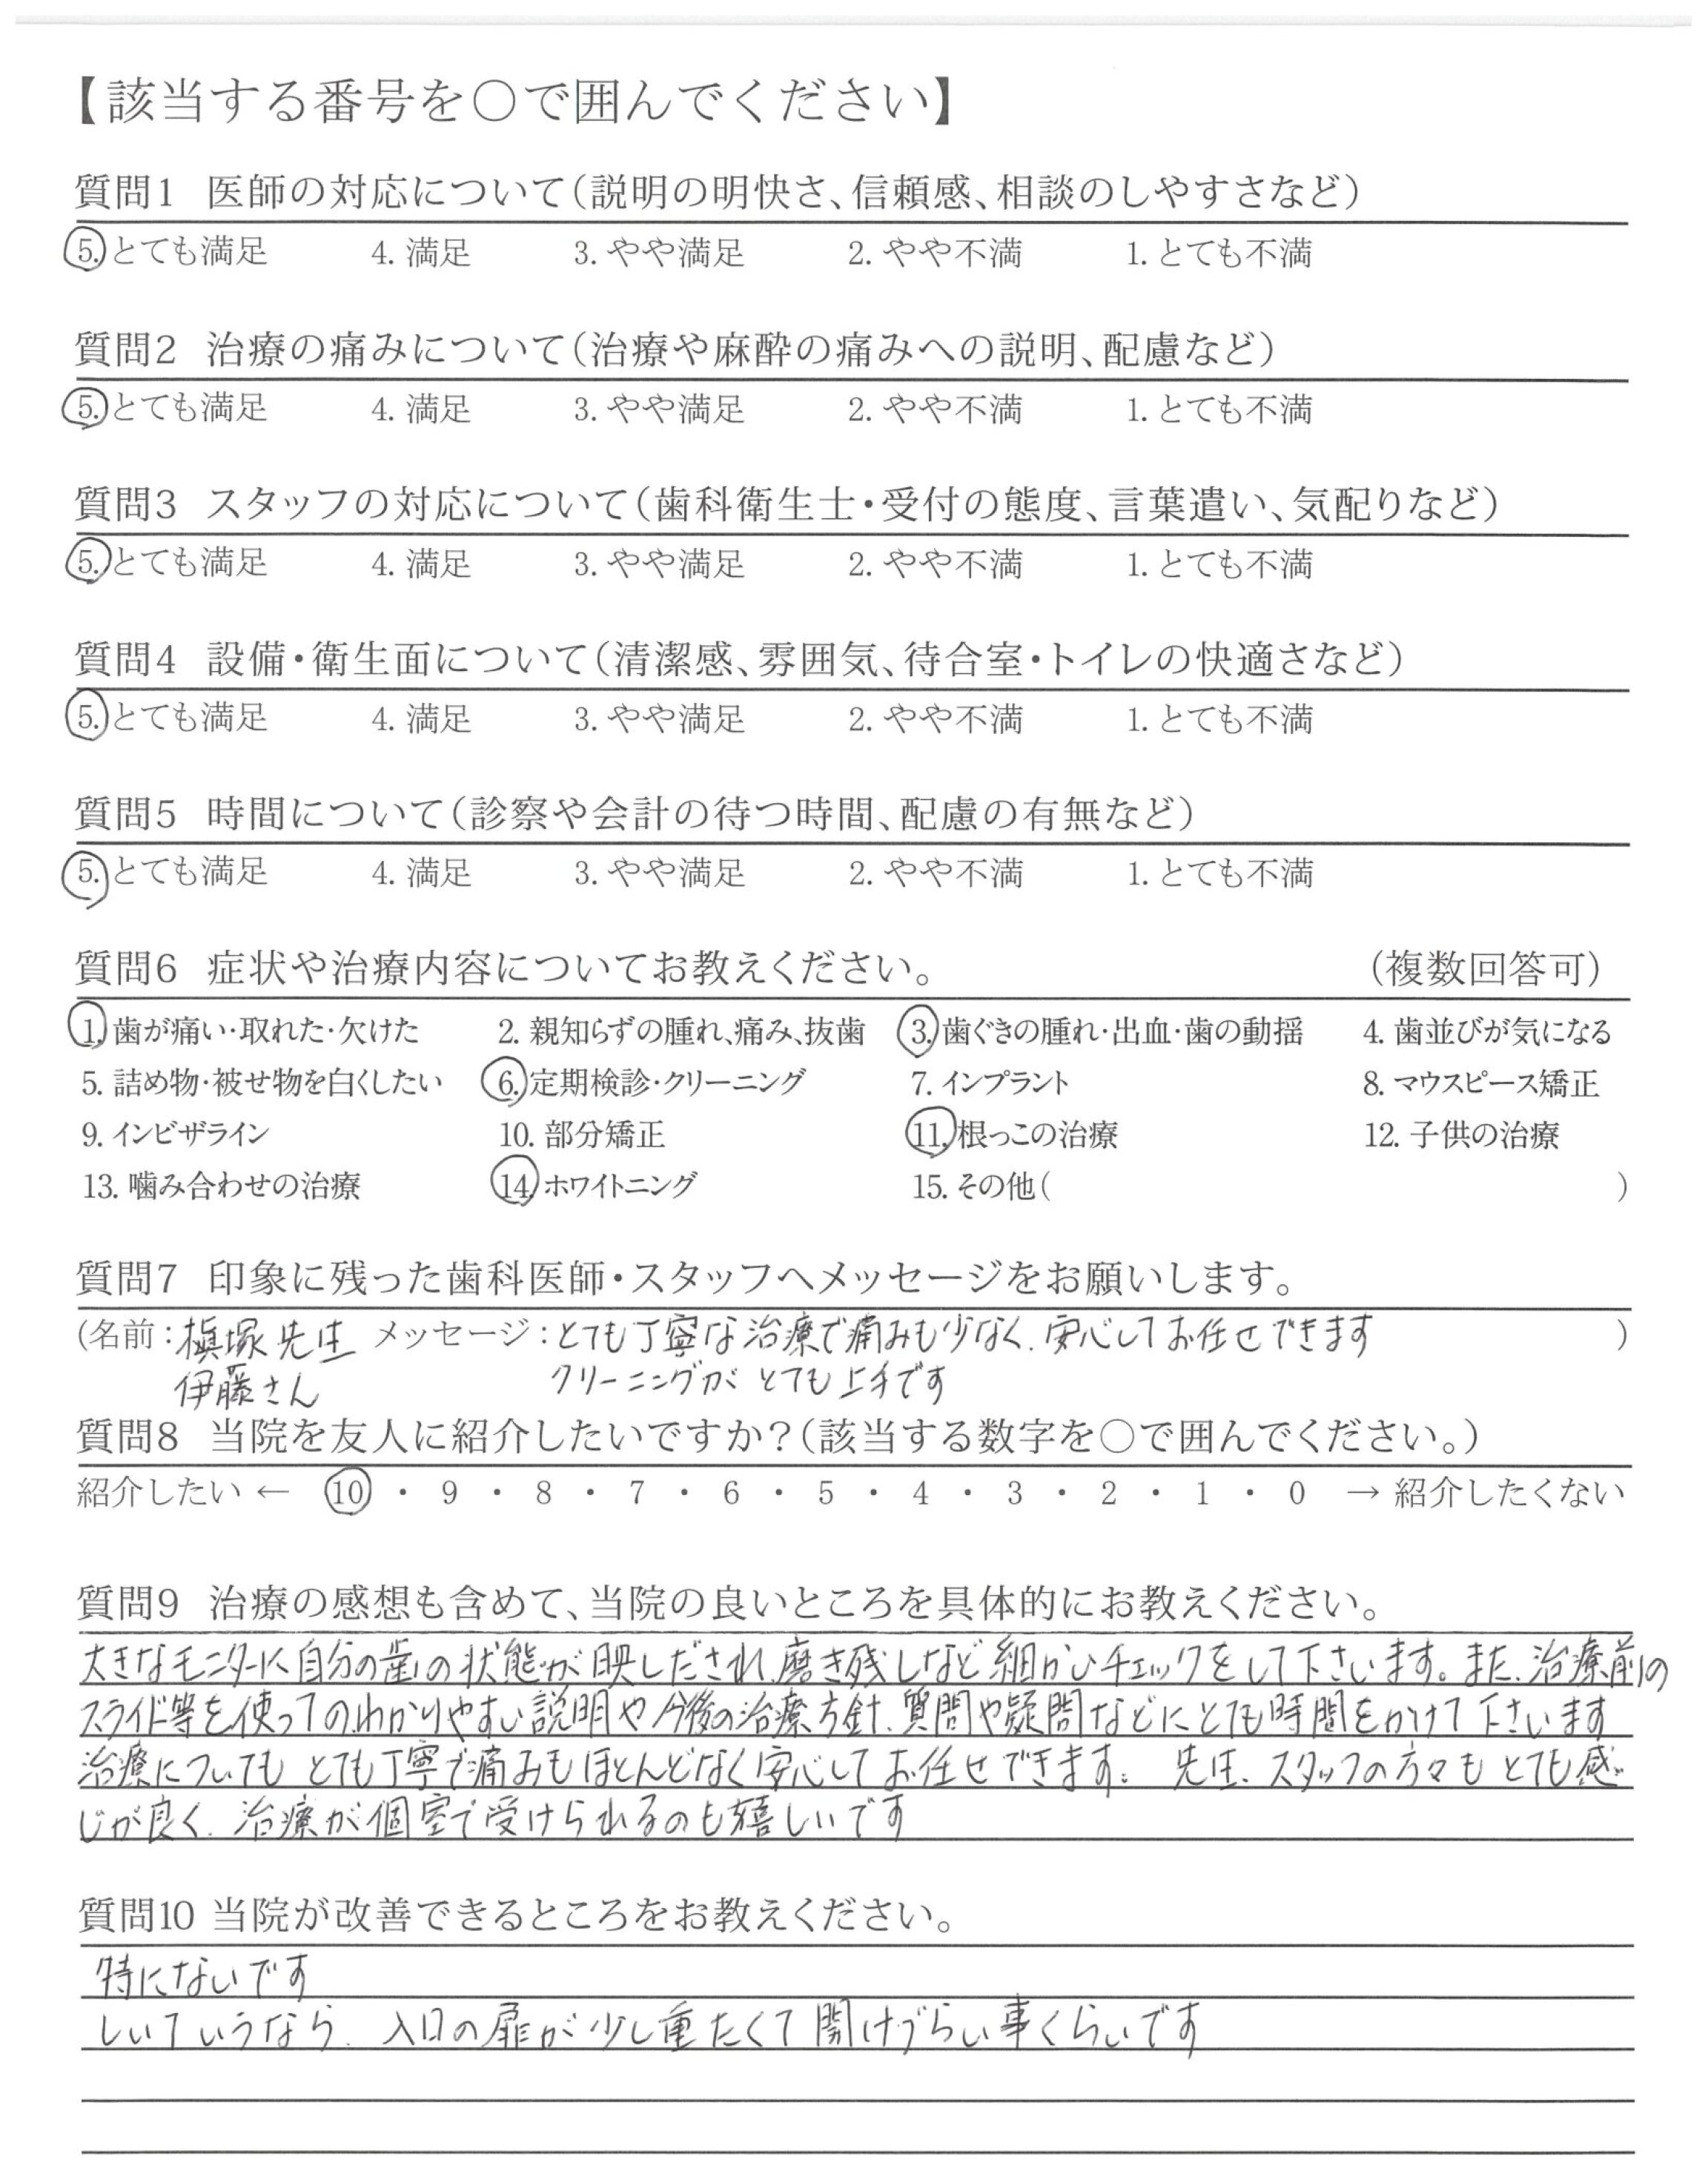 【該当する番号を○で囲んでください】
質問1 医師の対応について（説明の明快さ、信頼感、相談のしやすさなど）
5. とても満足 4. 満足 3. やや満足 2. やや不満 1. とても不満
質問2 治療の痛みについて（治療や麻酔の痛みへの説明、配慮など）
5. とても満足 4. 満足 3. やや満足 2. やや不満 1. とても不満
質問3 スタッフの対応について（歯科衛生士・受付の態度、言葉遣い、気配りなど）
5. とても満足 4. 満足 3. やや満足 2. やや不満 1. とても不満
質問4 設備・衛生面について（清潔感、雰囲気、待合室・トイレの快適さなど）
5. とても満足 4. 満足 3. やや満足 2. やや不満 1. とても不満
質問5 時間について（診察や会計の待つ時間、配慮の有無など）
5. とても満足 4. 満足 3. やや満足 2. やや不満 1. とても不満
質問6 症状や治療内容についてお教えください。 （複数回答可）
1. 歯が痛い・取れた・欠けた 2. 親知らずの腫れ、痛み、抜歯 3. 歯ぐきの腫れ・出血・歯の動揺 4. 歯並びが気になる
5. 詰め物・被せ物を白くしたい 6. 定期検診・クリーニング 7. インプラント 8. マウスピース矯正
9. インビザライン 10. 部分矯正 11. 根っこの治療 12. 子供の治療
13. 噛み合わせの治療 14. ホワイトニング 15. その他（ ）
質問7 印象に残った歯科医師・スタッフへメッセージをお願いします。
（名前：槇塚先生 メッセージ：とても丁寧な治療で痛みも少なく、安心してお任せできます ）
伊藤さん クリーニングがとても上手です
質問8 当院を友人に紹介したいですか？（該当する数字を○で囲んでください。）
紹介したい ← 10 ・ 9 ・ 8 ・ 7 ・ 6 ・ 5 ・ 4 ・ 3 ・ 2 ・ 1 ・ 0 → 紹介したくない
質問9 治療の感想も含めて、当院の良いところを具体的にお教えください。
大きなモニターに自分の歯の状態が映しだされ、磨き残しなど細かいチェックをして下さいます。また、治療前の
スライド等を使ってのわかりやすい説明や今後の治療方針、質問や疑問などにとても時間をかけて下さいます
治療についてもとても丁寧で痛みもほとんどなく安心してお任せできます。 先生、スタッフの方々もとても感
じが良く、治療が個室で受けられるのも嬉しいです
質問10 当院が改善できるところをお教えください。
特にないです
しいていうなら、入口の扉が少し重たくて開けづらい事くらいです